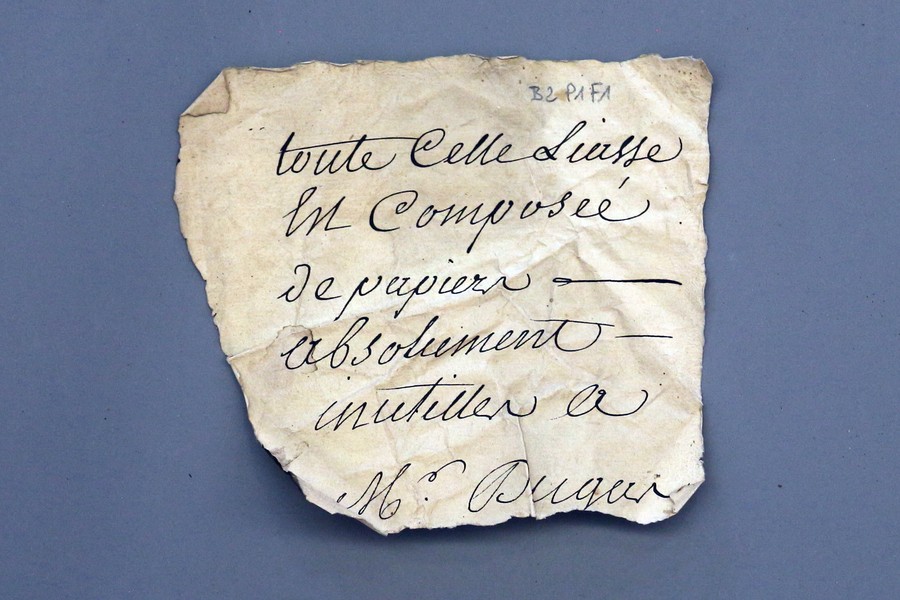 B2 P1 F1
toute Cette Liasse
Est Composéé
de papiers
absolument
inutilles a
Mr. Dugas